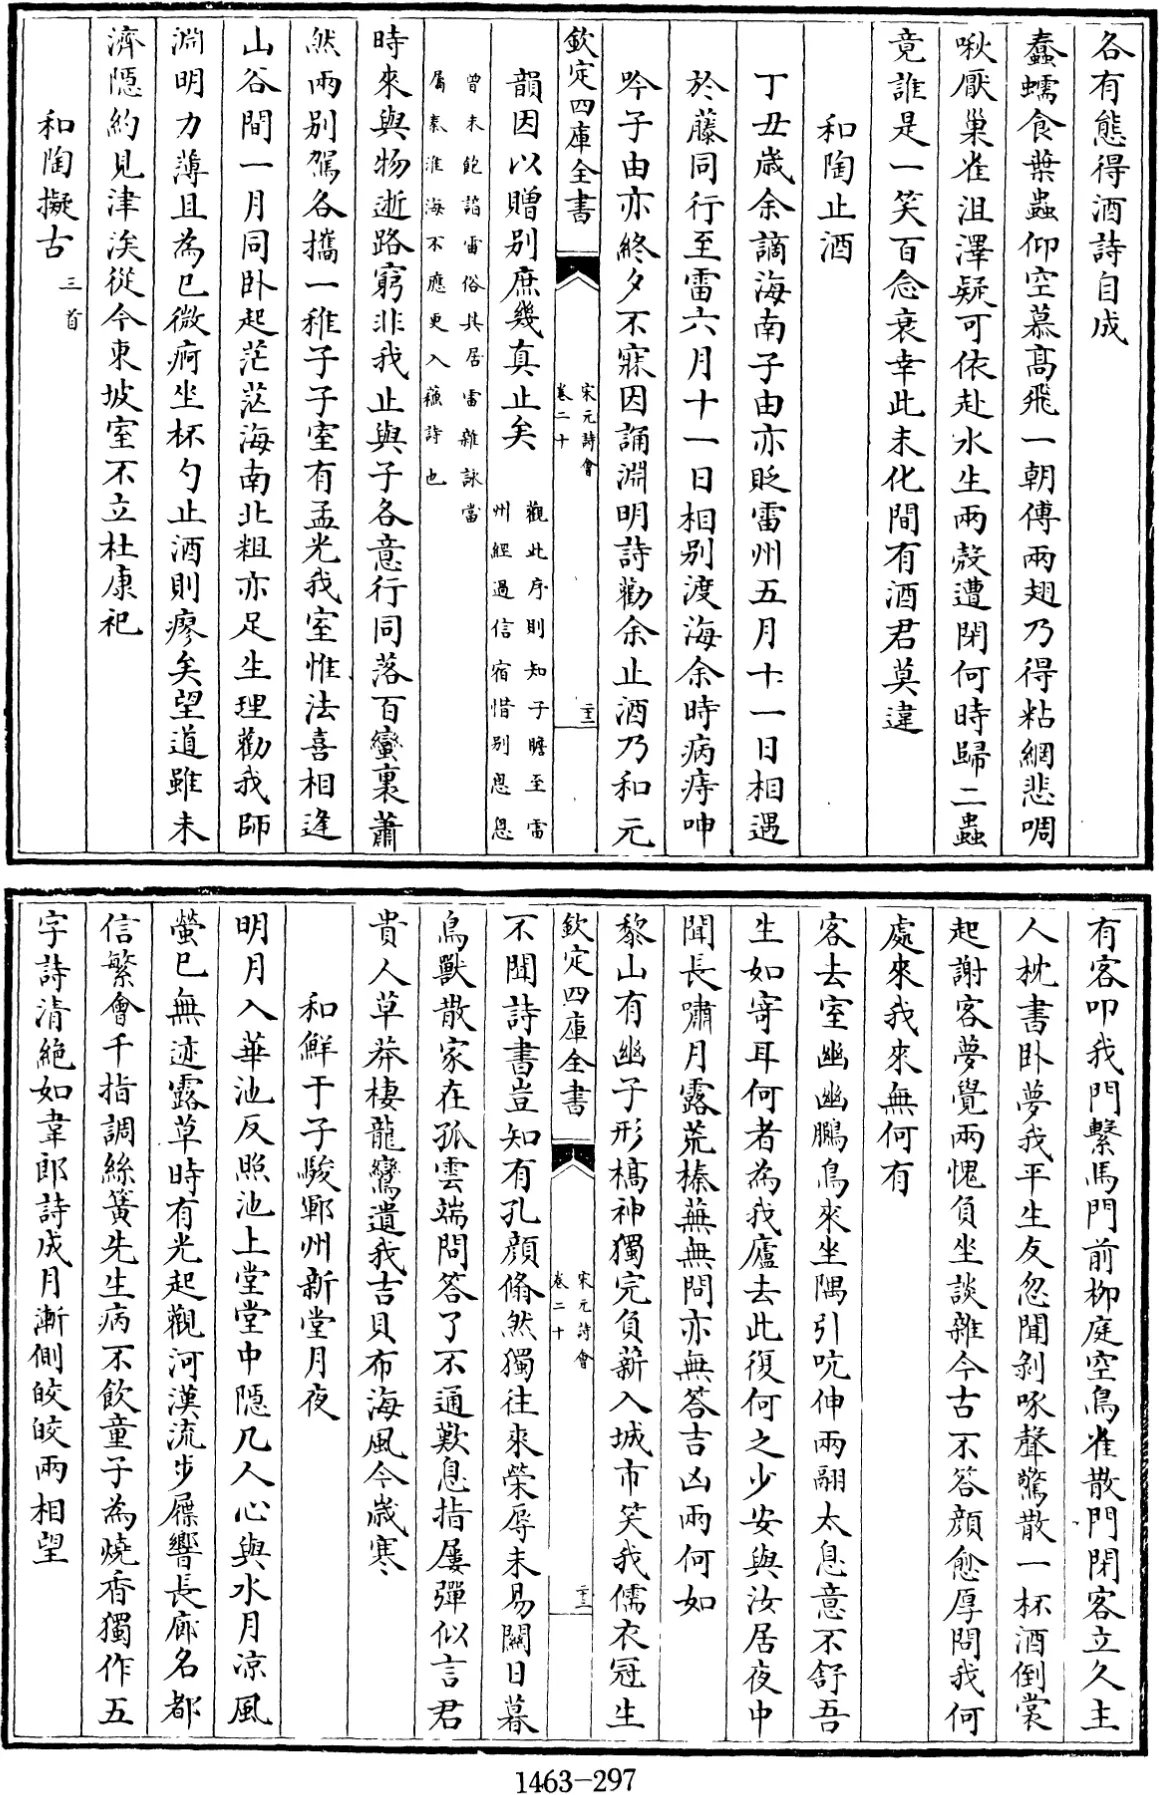 各有態得酒詩自成
蠢蠕食葉蟲仰空慕高飛一朝傅兩翅乃得粘網悲啁
啾厭巢雀沮澤疑可依赴水生兩殼遭閉何時歸二蟲
竟誰是一笑百念衰幸此未化間有酒君莫違
和陶止酒
丁丑歲余謫海南子由亦貶雷州五月十一日相遇
於藤同行至雷六月十一日相別渡海余時病痔呻
吟子由亦終夕不寐因誦淵明詩勸余止酒乃和元
欽定四庫全書
宋元詩會
卷二十
二十二
韻因以贈別庶幾真止矣
觀此序則知子瞻至雷
州經過信宿惜別悤悤
曾未飽諳雷俗其居雷雜詠當
屬秦淮海不應更入蘓詩也
時來與物逝路窮非我止與子各意行同落百蠻裏蕭
然兩別駕各攜一稚子子室有孟光我室惟法喜相逢
山谷間一月同卧起茫茫海南北粗亦足生理勸我師
淵明力薄且為已微痾坐杯勺止酒則瘳矣望道雖未
濟隱約見津涘從今東坡室不立杜康祀
和陶擬古三首
有客叩我門繫馬門前柳庭空鳥雀散門閉客立久主
人枕書卧夢我平生友忽聞剝啄聲驚散一杯酒倒裳
起謝客夢覺兩愧負坐談雜今古不答顔愈厚問我何
處來我來無何有
客去室幽幽鵩鳥來坐隅引吭伸兩翮太息意不舒吾
生如寄耳何者為我廬去此復何之少安與汝居夜中
聞長嘯月露荒榛蕪無問亦無答吉凶兩何如
黎山有幽子形槁神獨完負薪入城市笑我儒衣冠生
欽定四庫全書
宋元詩會
卷二十
二十三
不聞詩書豈知有孔顔翛然獨往來榮辱未易關日暮
鳥獸散家在孤雲端問答了不通歎息指屢彈似言君
貴人草莽棲龍鸞遺我吉貝布海風今歲寒
和鮮于子駿鄆州新堂月夜
明月入華池反照池上堂堂中隱几人心與水月凉風
螢已無迹露草時有光起觀河漢流步屧響長廊名都
信繁會千指調絲簧先生病不飲童子為燒香獨作五
字詩清絶如韋郎詩成月漸側皎皎兩相望
1463-297